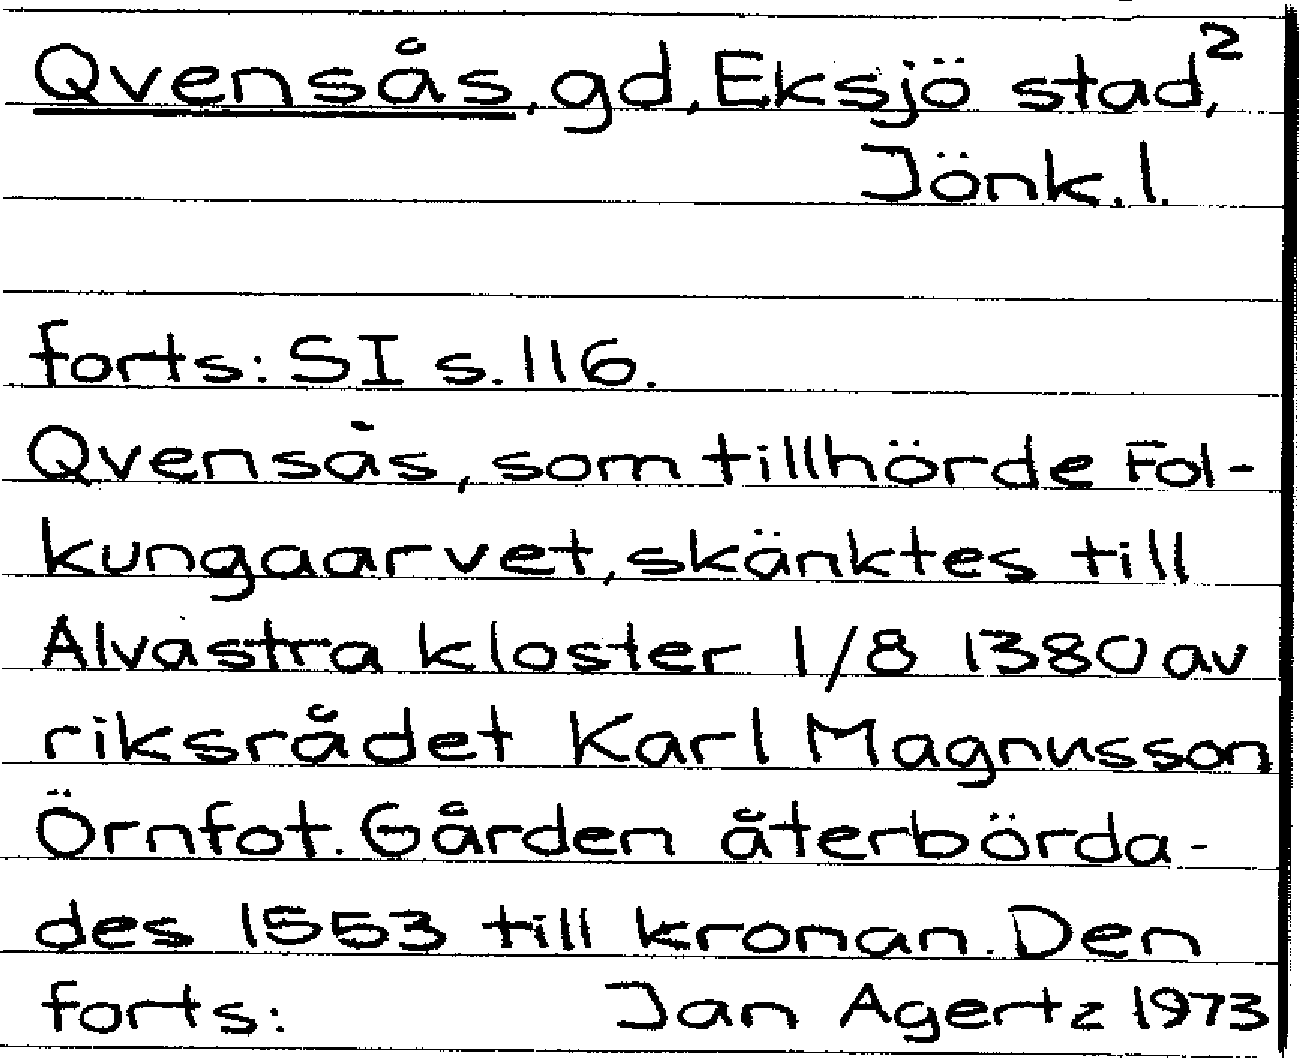 Qvensås, gd, Eksjö stad,²
Jönk. l.
forts: SI s. 116.
Qvensås, som tillhörde Fol-
kungaarvet, skänktes till
Alvastra kloster 1/8 1380 av
riksrådet Karl Magnusson
Örnfot. Gården återbörda-
des 1553 till kronan. Den
forts: Jan Agertz 1973